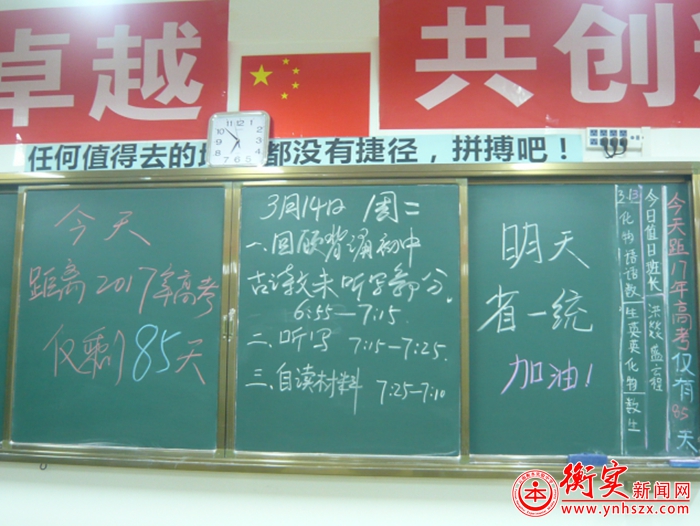 卓越
共创
任何值得去的 都没有捷径，拼搏吧！
今天
距离2017年高考
仅剩85天
3月14日 周二
一、回顾背诵初中
古诗文未听写部分。
6:55—7:15
二、听写 7:15—7:25.
三、自读材料 7:25—7:10
明天
省一统
加油！
3.13 化物语语数 生英英化物数生
今日值日班长
今天距17年高考仅有85天
衡实新闻网
www.ynhszx.com